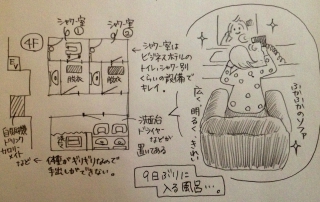 4F
シャワー室
シャワー室
脱衣
脱衣
シャワー室は
ビジネスホテルの
トイレ、シャワー別
くらいの設備で
キレイ。
洗面台
ドライヤー
などが
置いてある
自販機
ドリンク
カロリー
メイト
など
体裁がギリギリなので
手出しができない。
9日ぶりに
入る風呂…。
ふかふかのソファ
広く、明るく、きれい